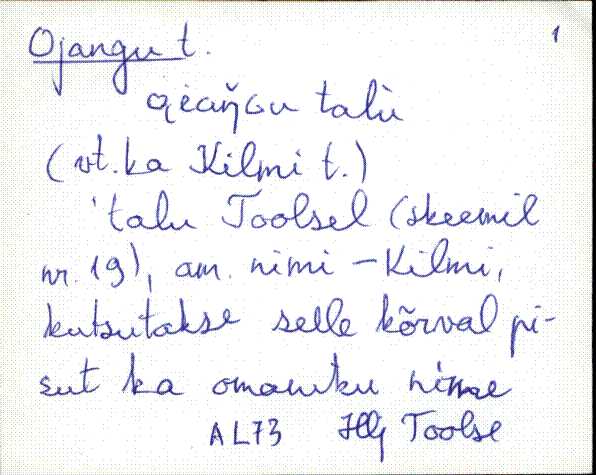 Ojangu t. 1
(vt. ka Kilmi t.)
'talu Toolsel (skeemil
nr. 19), am. nimi – Kilmi,
kutsutakse selle kõrval pi-
sut ka omaniku nime
AL73 Toolse